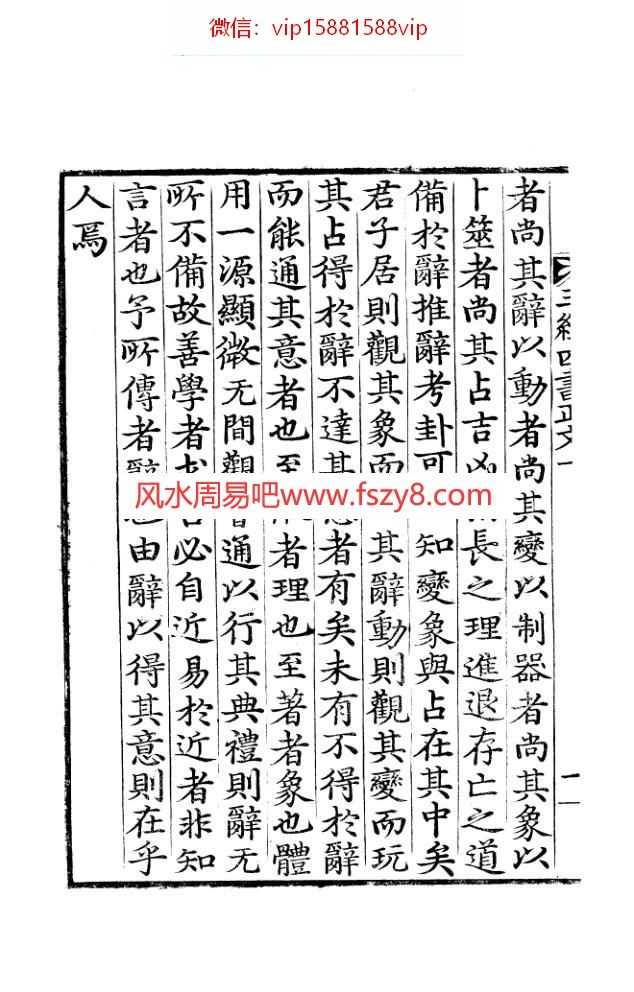 微信：vip15881588vip
三經四書正文
一
者尚其辭以動者尚其變以制器者尚其象以
卜筮者尚其占吉凶長之理進退存亡之道
備於辭推辭考卦可知變象與占在其中矣
君子居則觀其象而其辭動則觀其變而玩
其占得於辭不達其意者有矣未有不得於辭
而能通其意者也至者理也至著者象也體
用一源顯微无間觀會通以行其典禮則辭无
所不備故善學者求言必自近易於近者非知
言者也予所傳者辭也由辭以得其意則在乎
人焉
风水周易吧www.fszy8.com